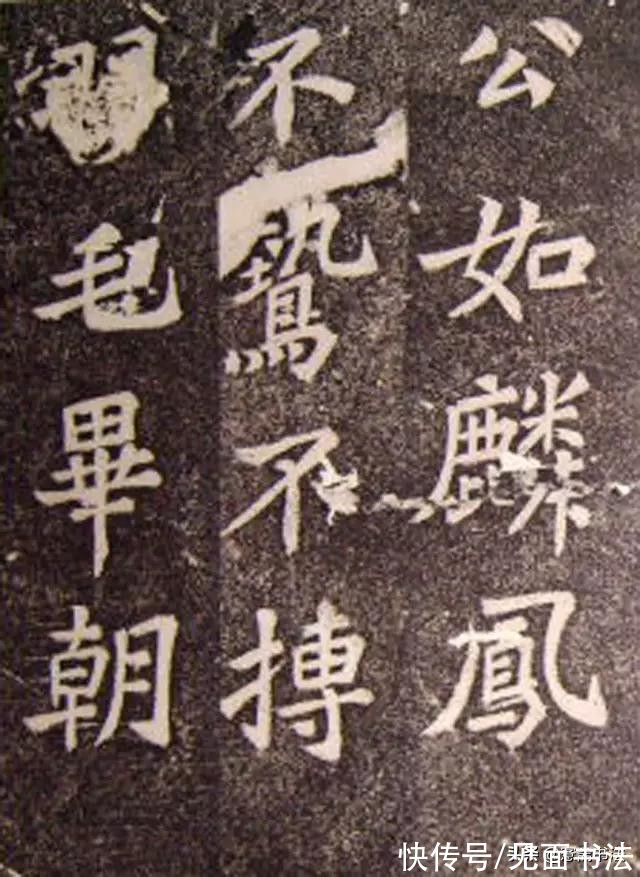 公如麟鳳
不鷙不搏
羽毛畢朝
快传号/见面书法